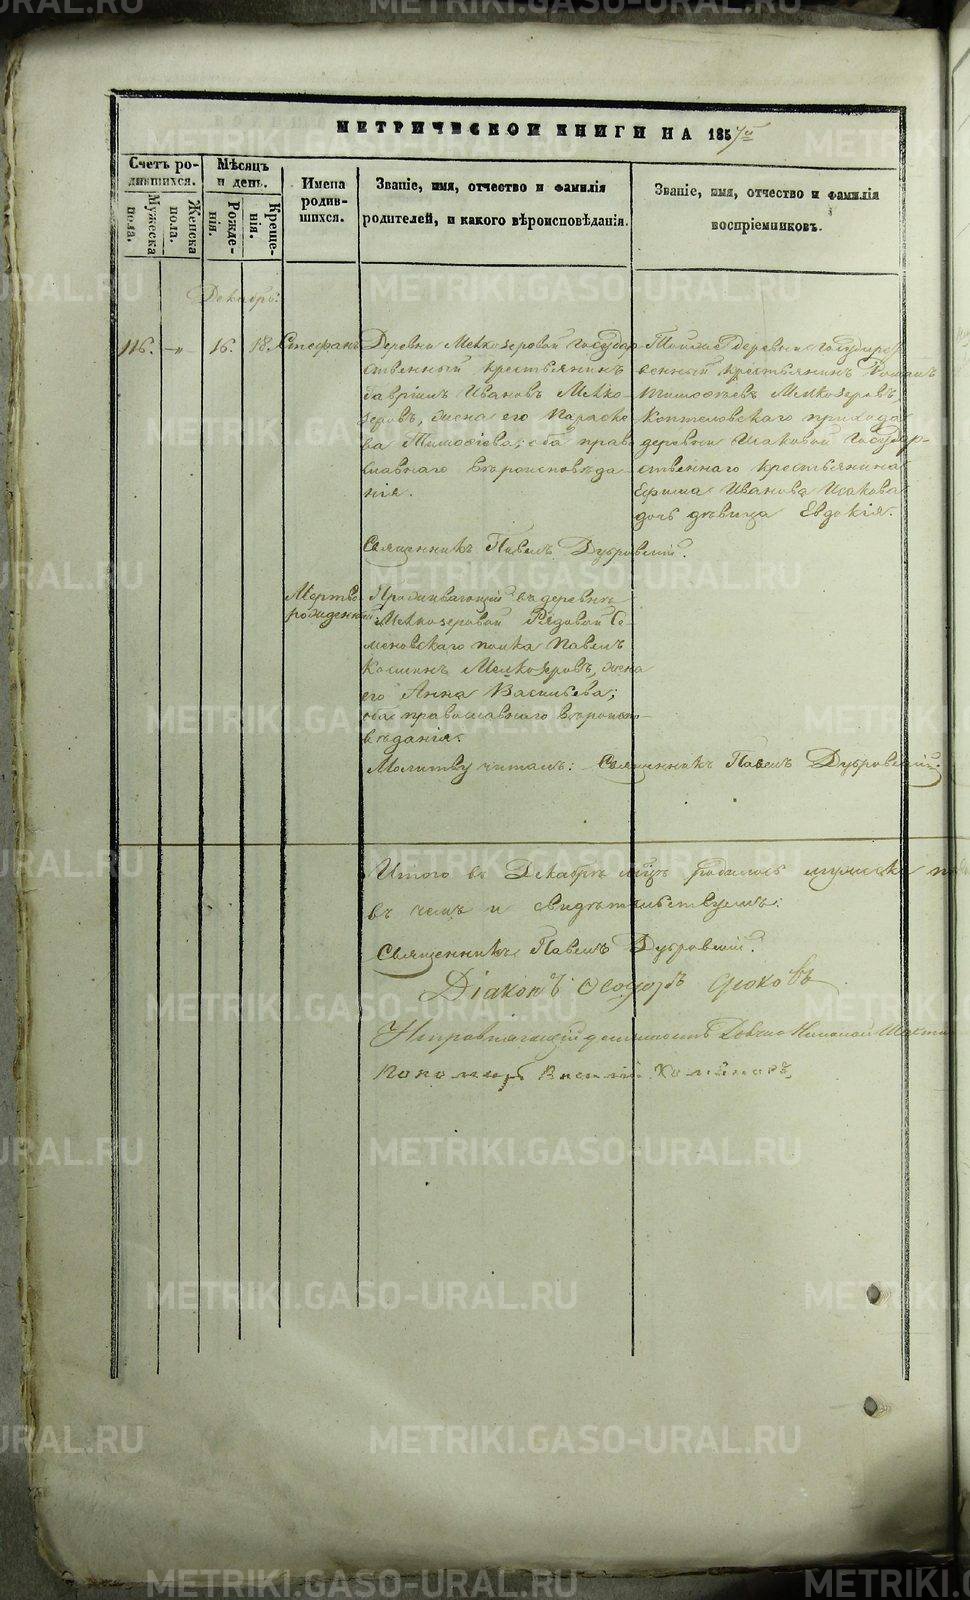 МЕТРИЧЕСКОЙ КНИГИ НА 1857й
Счетъ ро-
дившихся.
Мужеска
пола.
Женска
пола.
Мѣсяцъ
и день.
Рожде-
нія.
Креще-
нія.
Имена
родив-
шихся.
Званіе, имя, отчество и фамилія
родителей, и какого вѣроисповѣданія.
Званіе, имя, отчество и фамилія
воспріемниковъ.
Декабрь:
116. 16. 18. Стефанъ
Деревни Мелкозеровой Государ-
ственный крестьянинъ
Гавріилъ Ивановъ Мелко-
зеровъ, жена его Параске-
ва Тимофіева; оба право-
славнаго вѣроисповѣда-
нія.
Тойже деревни Государст-
венный крестьянинъ Романъ
Тимофѣевъ Мелкозеровъ
Коптеловскаго прихода
деревни Исаковой Государ-
ственнаго крестьянина
Ефима Иванова Исакова
дочь дѣвица Евдокія.
Священникъ Павелъ Дубровскій.
Мертво-
рожденный
Проживающій въ деревнѣ
Мелкозеровой Рядовой Се-
меновскаго полка Павелъ
Мелкозеровъ, жена
его Анна Васильева;
оба православнаго вѣроиспо-
вѣданія.
Молитву читалъ: Священникъ Павелъ Дубровскій.
Итого въ Декабрѣ м҃цѣ родилось мужеска
въ чемъ и свидѣтельствуемъ:
Священникъ Павелъ Дубровскій.
Діаконъ
Исправляющій должность Николай
Пономарь Василій
METRIKI.GASO-URAL.RU